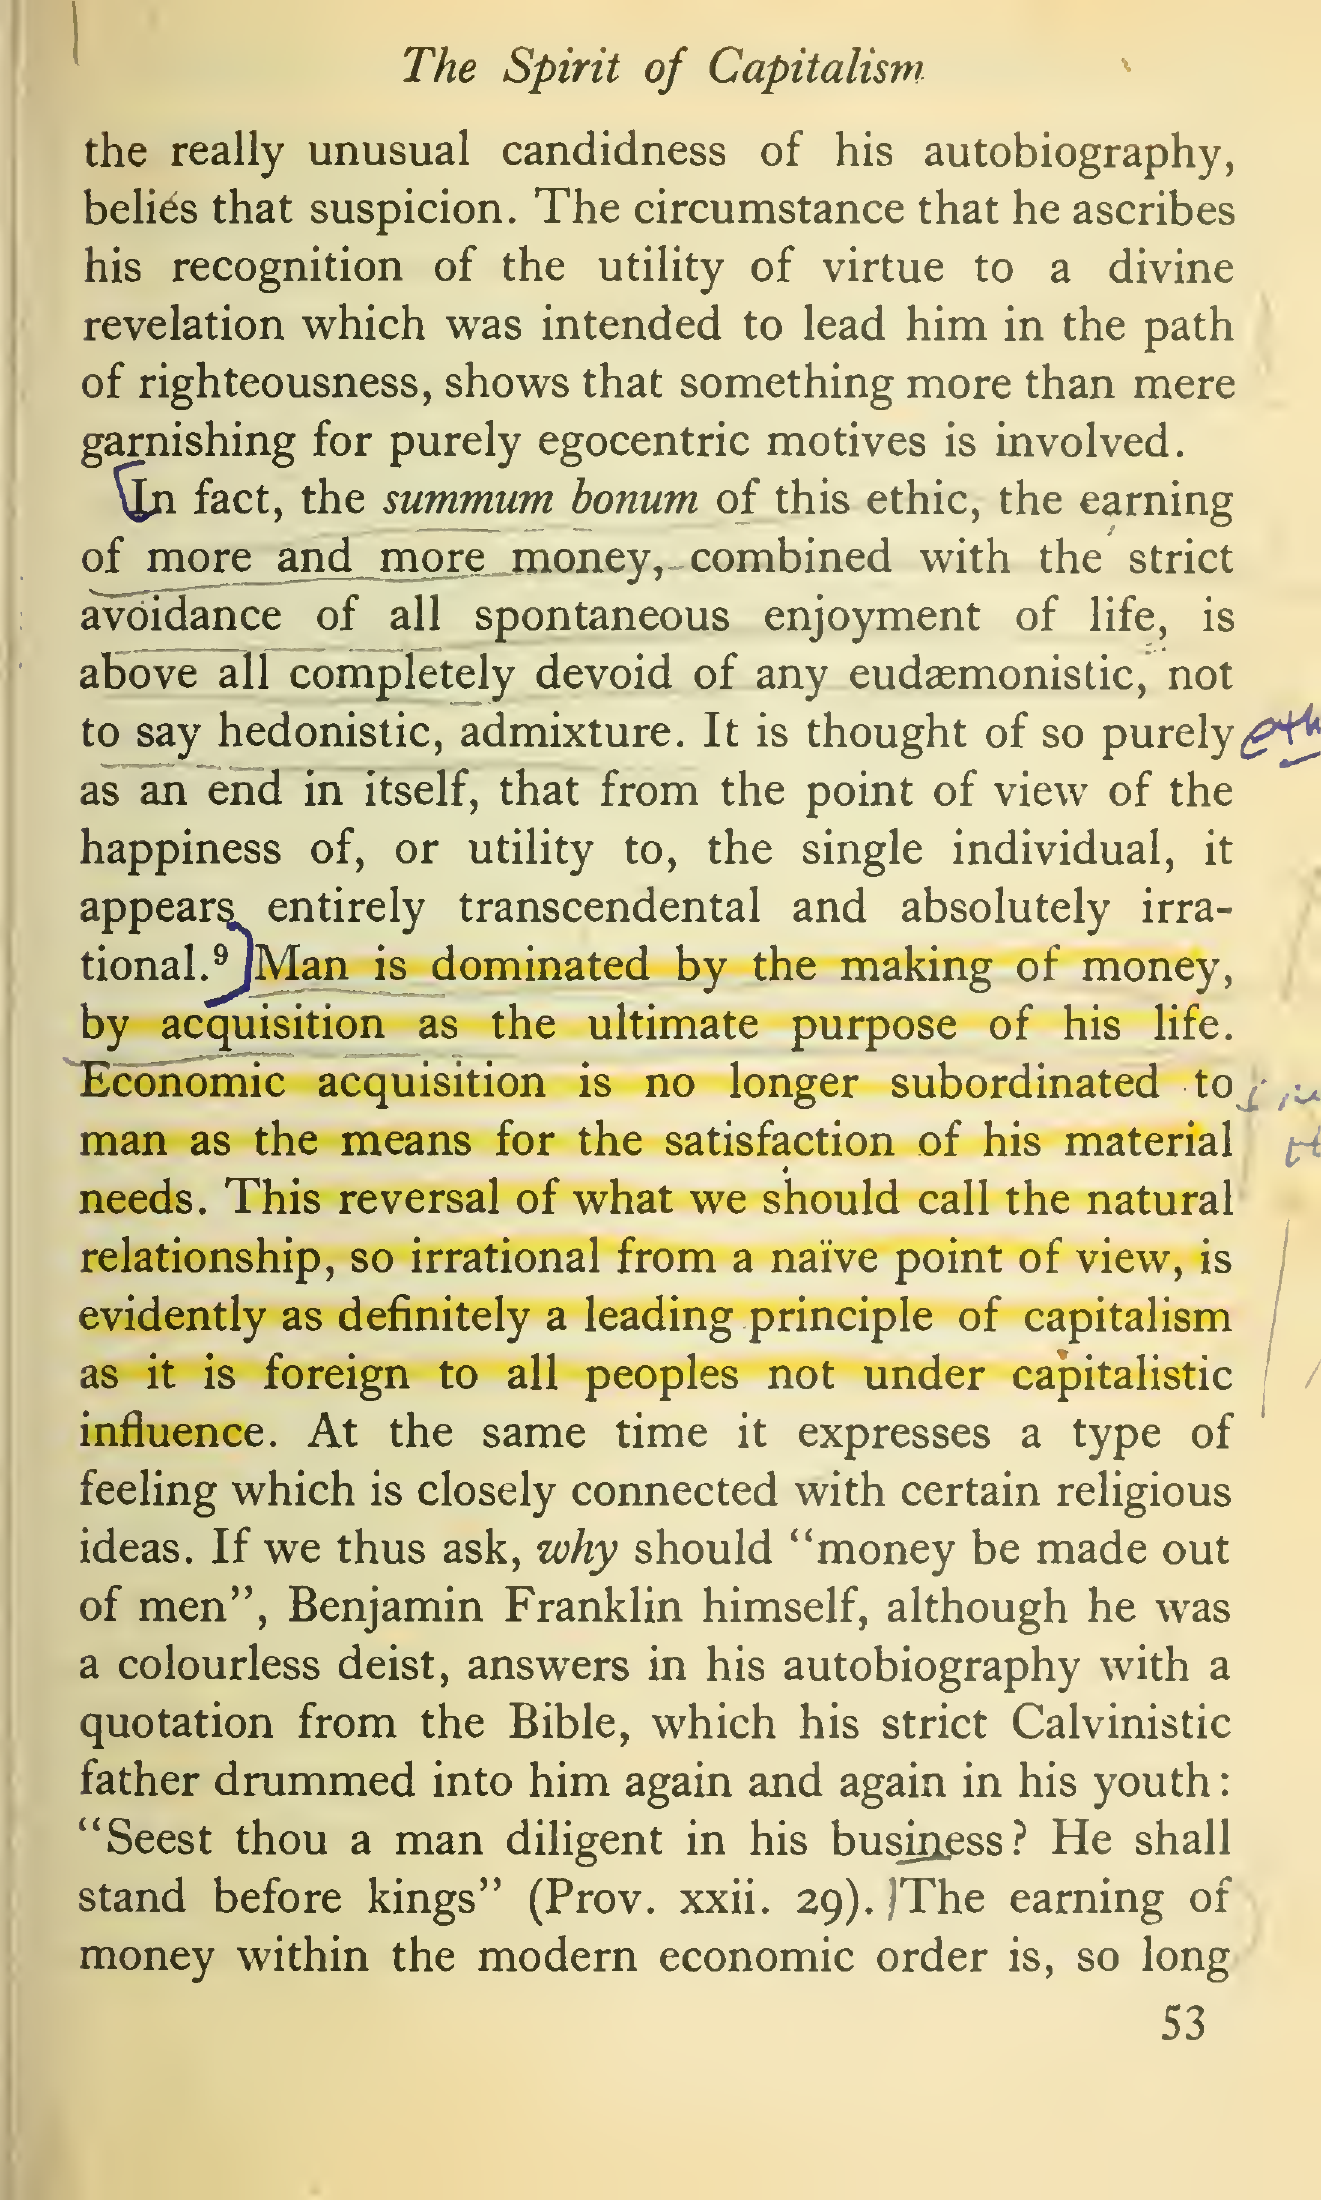 The Spirit of Capitalism
the really unusual candidness of his autobiography,
belies that suspicion. The circumstance that he ascribes
his recognition of the utility of virtue to a divine
revelation which was intended to lead him in the path
of righteousness, shows that something more than mere
garnishing for purely egocentric motives is involved.
In fact, the summum bonum of this ethic, the earning
of more and more money, combined with the strict
avoidance of all spontaneous enjoyment of life, is
above all completely devoid of any eudæmonistic, not
to say hedonistic, admixture. It is thought of so purely
as an end in itself, that from the point of view of the
happiness of, or utility to, the single individual, it
appears entirely transcendental and absolutely irra-
tional.⁹ Man is dominated by the making of money,
by acquisition as the ultimate purpose of his life.
Economic acquisition is no longer subordinated to
man as the means for the satisfaction of his material
needs. This reversal of what we should call the natural
relationship, so irrational from a naïve point of view, is
evidently as definitely a leading principle of capitalism
as it is foreign to all peoples not under capitalistic
influence. At the same time it expresses a type of
feeling which is closely connected with certain religious
ideas. If we thus ask, why should “money be made out
of men”, Benjamin Franklin himself, although he was
a colourless deist, answers in his autobiography with a
quotation from the Bible, which his strict Calvinistic
father drummed into him again and again in his youth:
“Seest thou a man diligent in his business? He shall
stand before kings” (Prov. xxii. 29). The earning of
money within the modern economic order is, so long
53